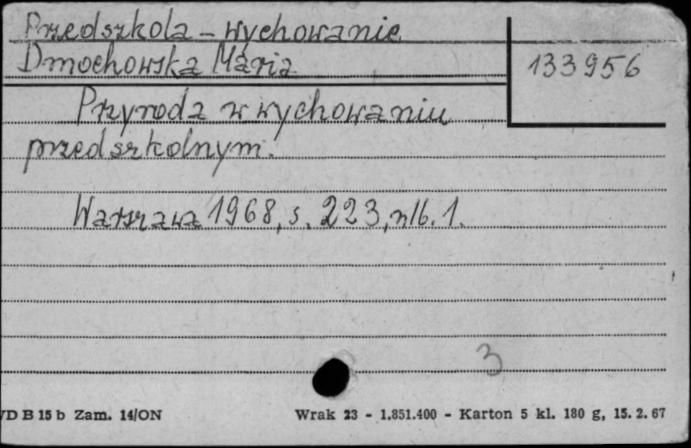 Przedszkola - wychowanie
Dmochowska Maria
133956
Przyroda w wychowaniu
przedszkolnym.
Warszawa 1968, s. 223, nlb. 1.
3
VD B 15 b Zam. 14/ON
Wrak 23 - 1.851.400 - Karton 5 kl. 180 g, 15. 2. 67